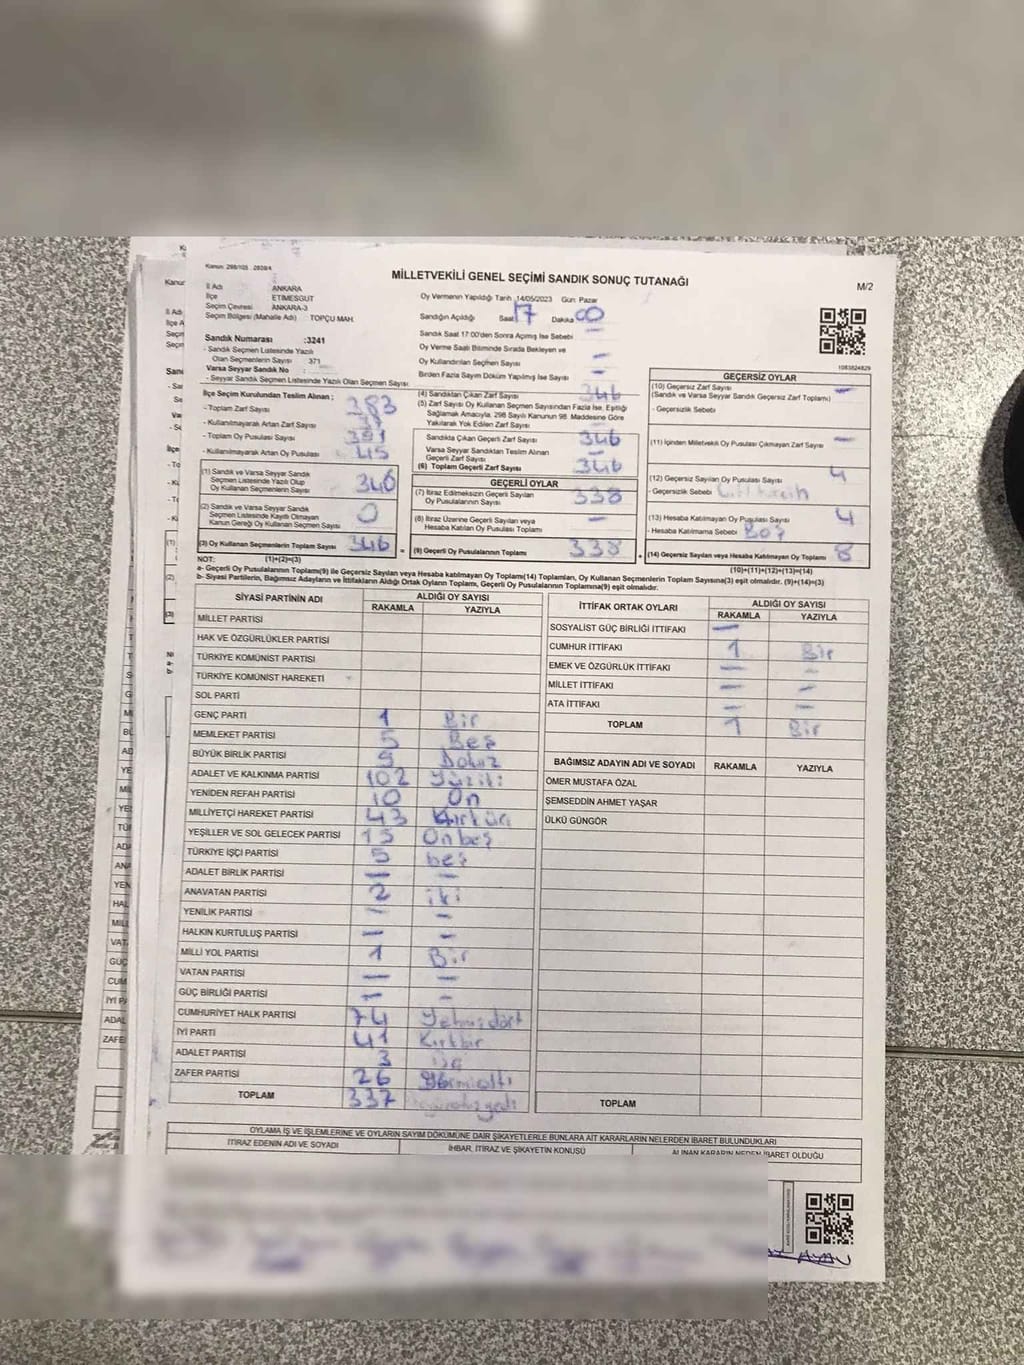 Kanun: 298/105 , 2839/4
MİLLETVEKİLİ GENEL SEÇİMİ SANDIK SONUÇ TUTANAĞI
M/2
İl Adı ANKARA
İlçe ETİMESGUT
Seçim Çevresi ANKARA-3
Seçim Bölgesi (Mahalle Adı) TOPÇU MAH.
Oy Vermenin Yapıldığı Tarih 14/05/2023 Gün: Pazar
Sandığın Açıldığı Saat 17 Dakika 00
Sandık Saat 17:00'den Sonra Açılmış İse Sebebi —
Oy Verme Saati Bitiminde Sırada Bekleyen ve
Oy Kullandırılan Seçmen Sayısı —
Birden Fazla Sayım Döküm Yapılmış İse Sayısı —
1083824829
Sandık Numarası :3241
- Sandık Seçmen Listesinde Yazılı
Olan Seçmenlerin Sayısı 371
Varsa Seyyar Sandık No
- Seyyar Sandık Seçmen Listesinde Yazılı Olan Seçmen Sayısı:
İlçe Seçim Kurulundan Teslim Alınan ;
- Toplam Zarf Sayısı 383
- Kullanılmayarak Artan Zarf Sayısı
- Toplam Oy Pusulası Sayısı
- Kullanılmayarak Artan Oy Pusulası 45
(1) Sandık ve Varsa Seyyar Sandık
Seçmen Listesinde Yazılı Olup
Oy Kullanan Seçmenlerin Sayısı 346
(2) Sandık ve Varsa Seyyar Sandık
Seçmen Listesinde Kayıtlı Olmayan
Kanun Gereği Oy Kullanan Seçmen Sayısı 0
(3) Oy Kullanan Seçmenlerin Toplam Sayısı 346
(1)+(2)=(3)
(4) Sandıktan Çıkan Zarf Sayısı 346
(5) Zarf Sayısı Oy Kullanan Seçmen Sayısından Fazla İse, Eşitliği
Sağlamak Amacıyla, 298 Sayılı Kanunun 98. Maddesine Göre
Yakılarak Yok Edilen Zarf Sayısı
Sandıkta Çıkan Geçerli Zarf Sayısı 346
Varsa Seyyar Sandıktan Teslim Alınan
Geçerli Zarf Sayısı —
(6) Toplam Geçerli Zarf Sayısı 346
GEÇERLİ OYLAR
(7) İtiraz Edilmeksizin Geçerli Sayılan
Oy Pusulalarının Sayısı 338
(8) İtiraz Üzerine Geçerli Sayılan veya
Hesaba Katılan Oy Pusulası Toplamı —
= (9) Geçerli Oy Pusulalarının Toplamı 338 +
GEÇERSİZ OYLAR
(10) Geçersiz Zarf Sayısı —
(Sandık ve Varsa Seyyar Sandık Geçersiz Zarf Toplamı)
- Geçersizlik Sebebi
(11) İçinden Milletvekili Oy Pusulası Çıkmayan Zarf Sayısı —
(12) Geçersiz Sayılan Oy Pusulası Sayısı 4
- Geçersizlik Sebebi
(13) Hesaba Katılmayan Oy Pusulası Sayısı 4
- Hesaba Katılmama Sebebi Boş
(14) Geçersiz Sayılan veya Hesaba Katılmayan Oy Toplamı 8
(10)+(11)+(12)+(13)=(14)
NOT:
a- Geçerli Oy Pusulalarının Toplamı(9) ile Geçersiz Sayılan veya Hesaba katılmayan Oy Toplamı(14) Toplamları, Oy Kullanan Seçmenlerin Toplam Sayısına(3) eşit olmalıdır. (9)+(14)=(3)
b- Siyasi Partilerin, Bağımsız Adayların ve İttifakların Aldığı Ortak Oyların Toplamı, Geçerli Oy Pusulalarının Toplamına(9) eşit olmalıdır.
SİYASİ PARTİNİN ADI ALDIĞI OY SAYISI
RAKAMLA YAZIYLA
MİLLET PARTİSİ
HAK VE ÖZGÜRLÜKLER PARTİSİ
TÜRKİYE KOMÜNİST PARTİSİ
TÜRKİYE KOMÜNİST HAREKETİ
SOL PARTİ
GENÇ PARTİ 1 Bir
MEMLEKET PARTİSİ 5 Beş
BÜYÜK BİRLİK PARTİSİ 9 Dokuz
ADALET VE KALKINMA PARTİSİ 102 Yüziki
YENİDEN REFAH PARTİSİ 10 On
MİLLİYETÇİ HAREKET PARTİSİ 43 Kırküç
YEŞİLLER VE SOL GELECEK PARTİSİ 15 Onbeş
TÜRKİYE İŞÇİ PARTİSİ 5 beş
ADALET BİRLİK PARTİSİ — —
ANAVATAN PARTİSİ 2 iki
YENİLİK PARTİSİ — —
HALKIN KURTULUŞ PARTİSİ — —
MİLLİ YOL PARTİSİ 1 Bir
VATAN PARTİSİ — —
GÜÇ BİRLİĞİ PARTİSİ — —
CUMHURİYET HALK PARTİSİ 74 Yetmişdört
İYİ PARTİ 41 Kırkbir
ADALET PARTİSİ 3 üç
ZAFER PARTİSİ 26 Yirmialtı
TOPLAM 337
İTTİFAK ORTAK OYLARI ALDIĞI OY SAYISI
RAKAMLA YAZIYLA
SOSYALİST GÜÇ BİRLİĞİ İTTİFAKI —
CUMHUR İTTİFAKI 1 Bir
EMEK VE ÖZGÜRLÜK İTTİFAKI — —
MİLLET İTTİFAKI — —
ATA İTTİFAKI — —
TOPLAM 1 Bir
BAĞIMSIZ ADAYIN ADI VE SOYADI RAKAMLA YAZIYLA
ÖMER MUSTAFA ÖZAL
ŞEMSEDDİN AHMET YAŞAR
ÜLKÜ GÜNGÖR
TOPLAM
OYLAMA İŞ VE İŞLEMLERİNE VE OYLARIN SAYIM DÖKÜMÜNE DAİR ŞİKAYETLERLE BUNLARA AİT KARARLARIN NELERDEN İBARET BULUNDUKLARI
İTİRAZ EDENİN ADI VE SOYADI İHBAR, İTİRAZ VE ŞİKAYETİN KONUSU ALINAN KARARIN NEDEN İBARET OLDUĞU